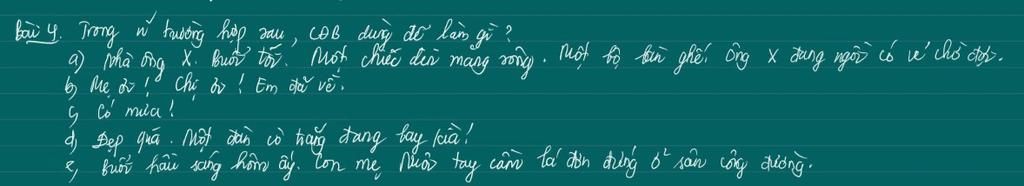 Bài 4. Trong n~ trường hợp sau, CĐB dùng để làm gì?
a) Nhà ông X. Buổi tối. Một chiếc đèn măng sông. Một bộ bàn ghế. Ông X đang ngồi có vẻ chờ đợi.
b) Mẹ ơi! Chị ơi! Em đã về.
c) Có mưa!
d) Đẹp quá. Một đàn cò trắng đang bay kìa!
e) Buổi hầu sáng hôm ấy. Con mẹ Nuôi tay cầm lá đơn đứng ở sân công đường.